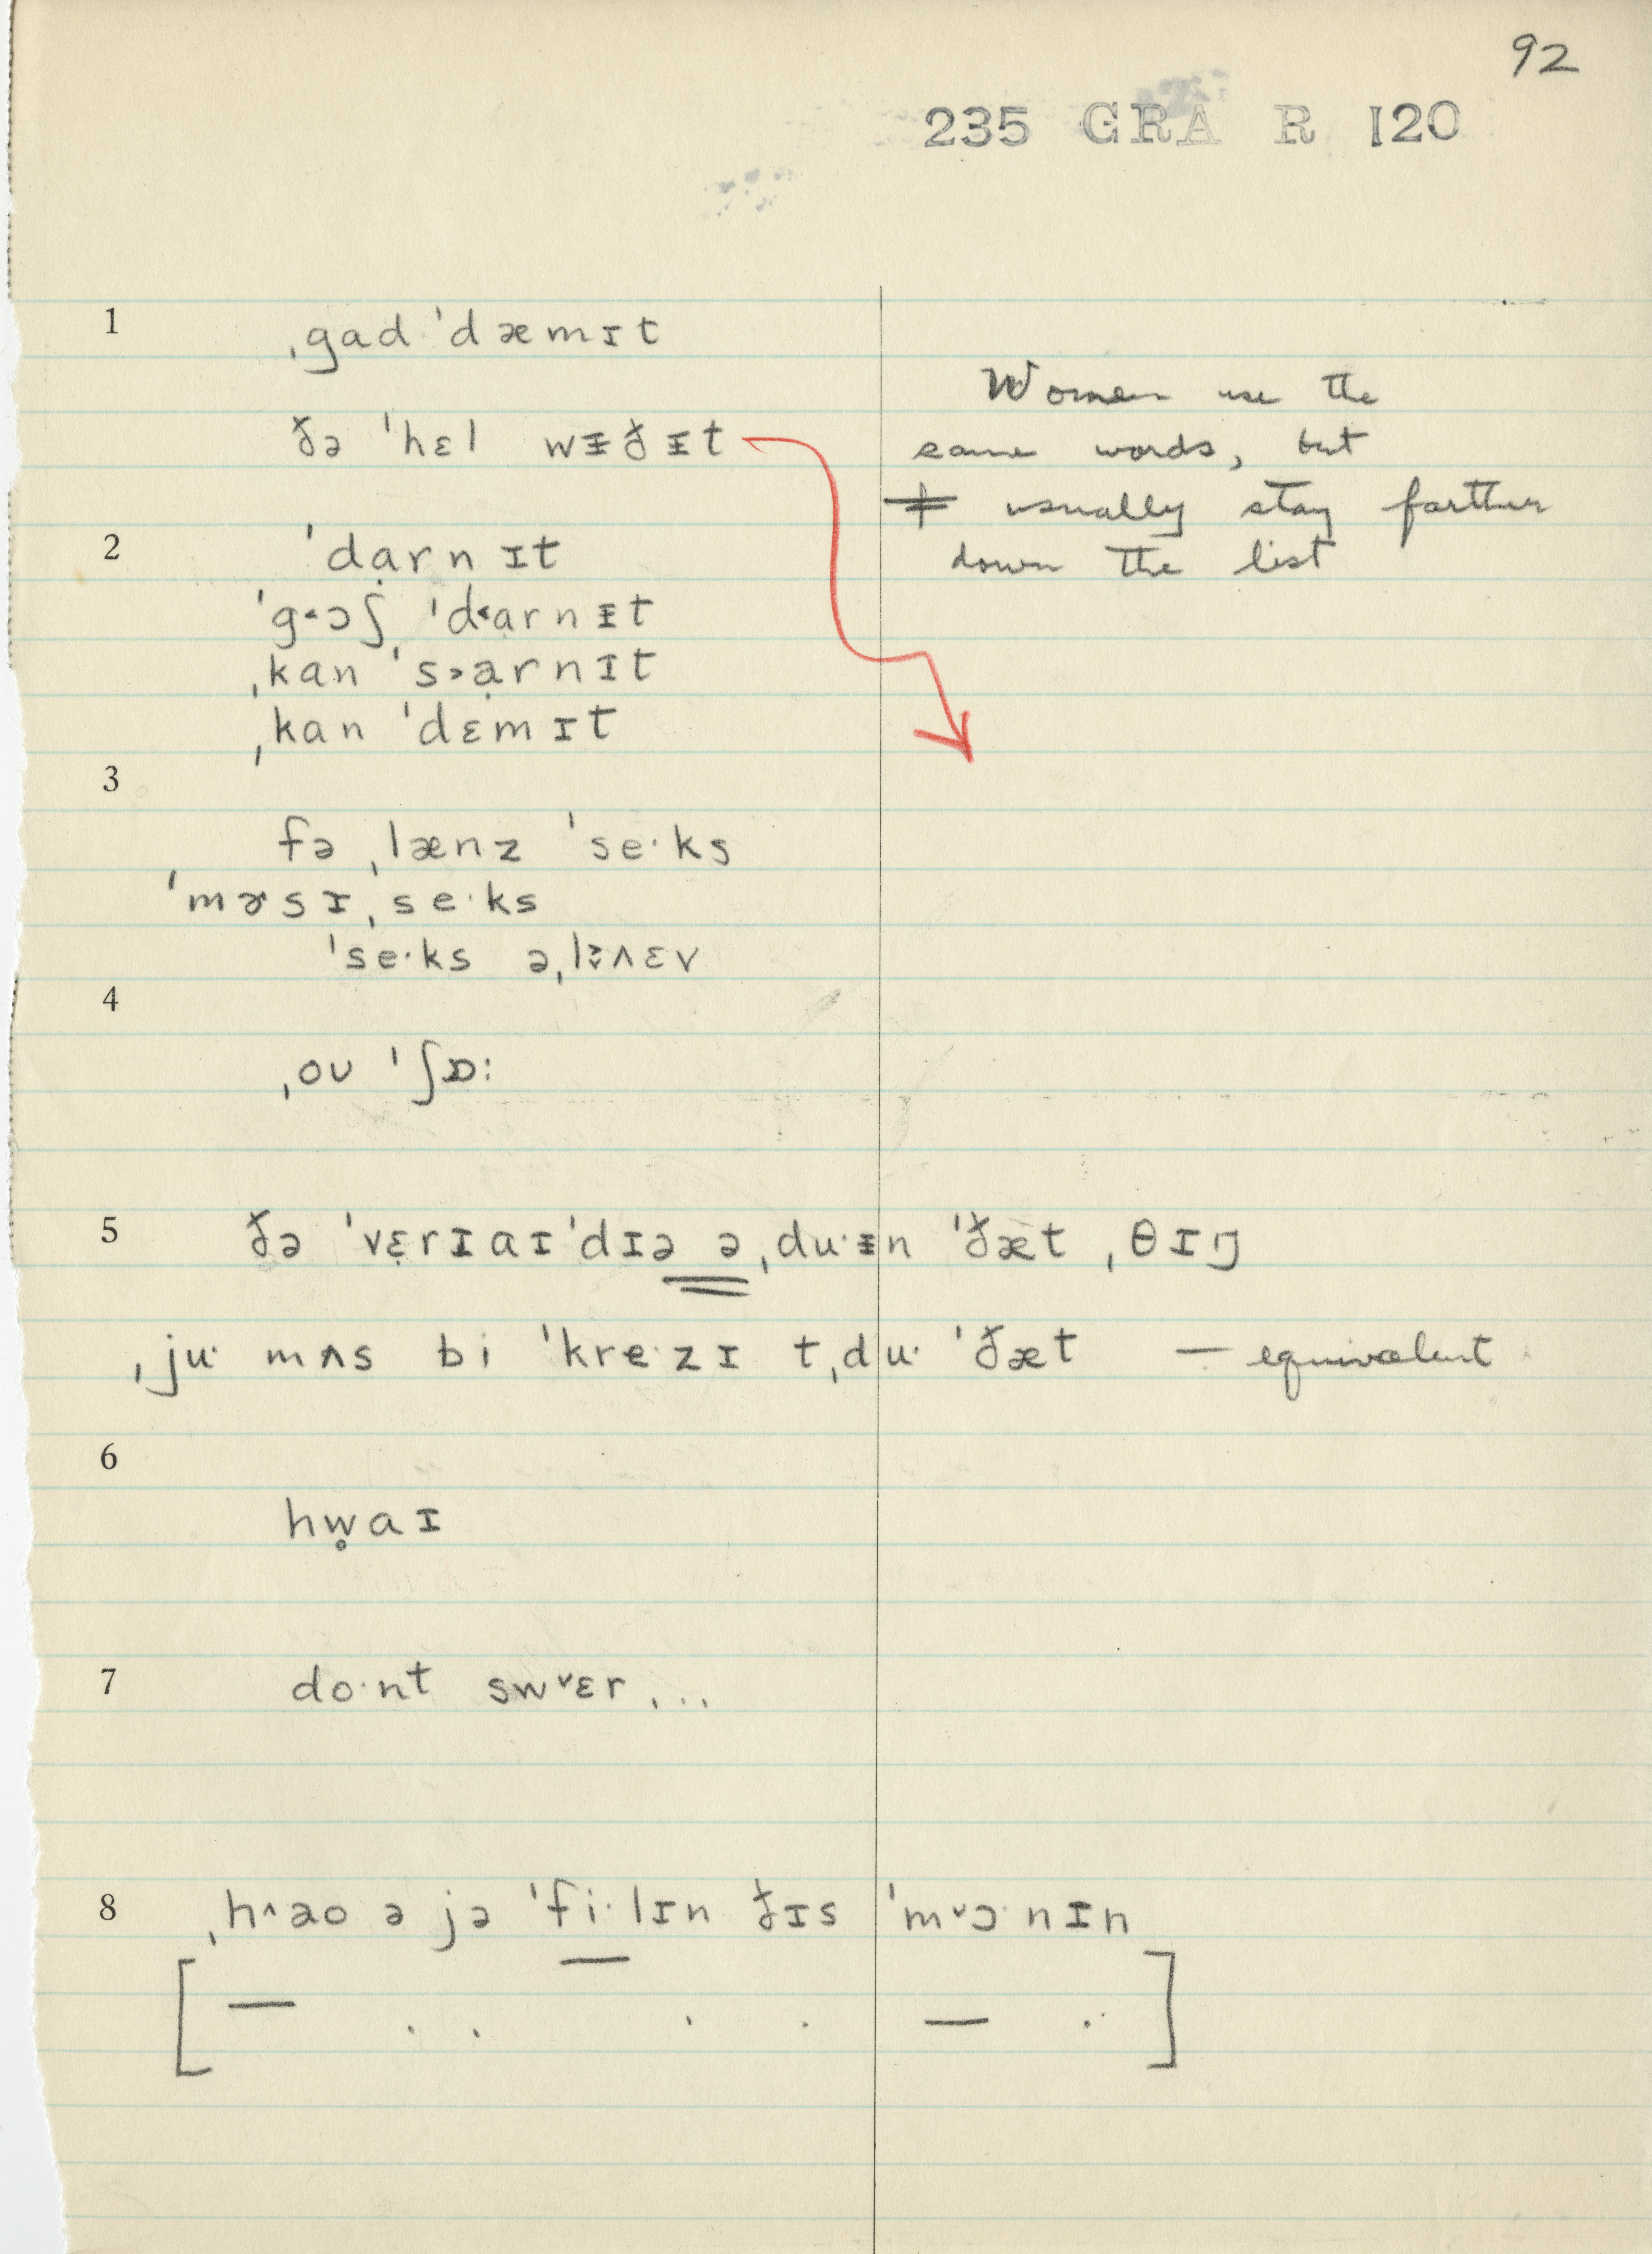 92
235 GRA R 120
1
ˌgad ˈdæmɪt
ðə ˈhɛl wᵻðᵻt
Women use the
same words, but
usually stay farther
down the list
2
ˈdạrnɪt
ˈg˂ɔʃ ˈd˂arnᵻt
ˌkan ˈs˃ạrnɪt
ˌkan ˈdɛmɪt
3
fə ˌlænz ˈse·ks
ˈmɚsɪˌse·ks
ˈse·ks əˌlɪ̈^ɛv
4
ˌoʊ ˈʃɒ:
5 ðə ˈvɛ̣rɪaɪˈdɪə əˌdu·ᵻn ˈðæt ˌθɪŋ
ˌju· mʌs bi ˈkre·zɪ tˌdu· ˈðæt — equivalent
6
hw̥aɪ
7 do·nt swˇɛr...
8 ˌh^ao ə jə ˈfi·lɪn ðɪs ˈmˇɔ·nɪn